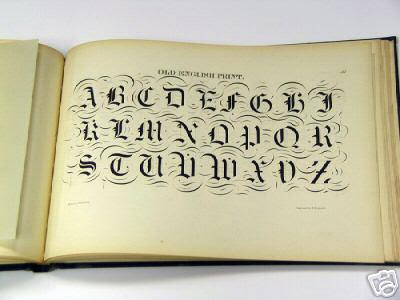 OLD ENGLISH PRINT.
A B C D E F G H I
K L M N O P Q R
S T U V W X Y Z